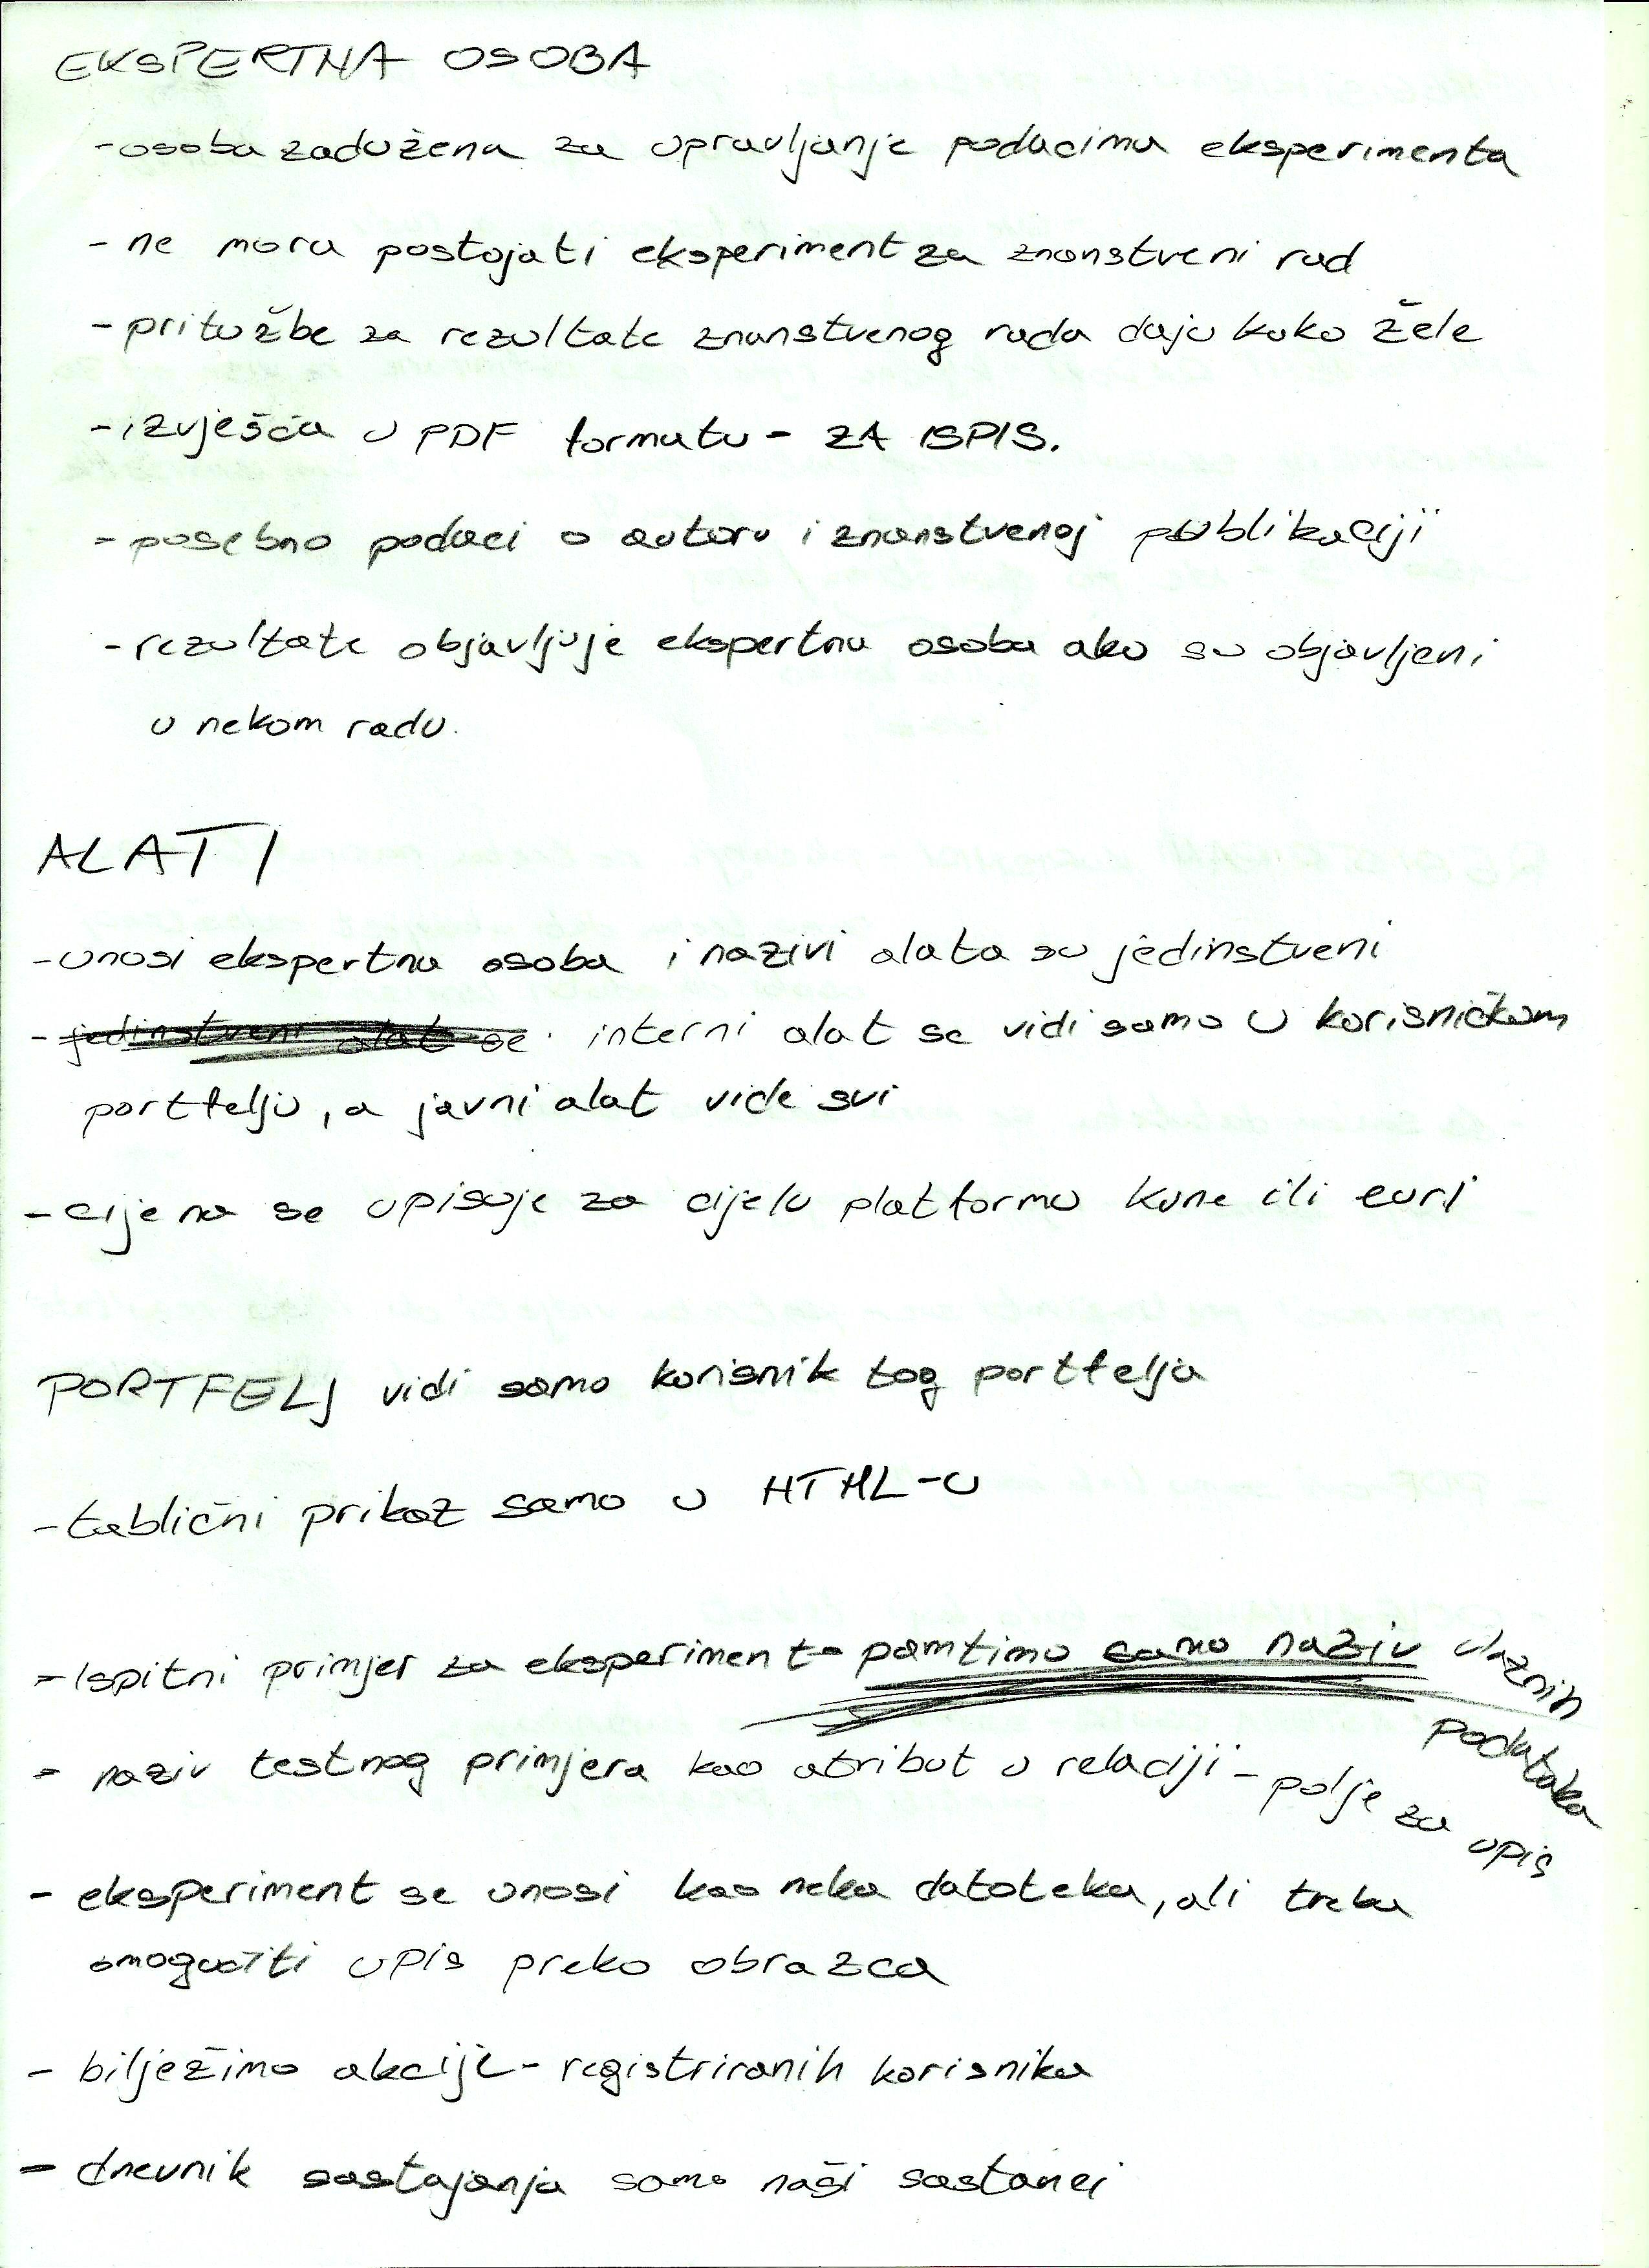 EKSPERTNA OSOBA
- osoba zadužena za upravljanje podacima eksperimenta
- ne mora postojati eksperiment za znanstveni rad
- pritužbe za rezultate znanstvenog rada daju kako žele
- izvješća u PDF formatu - ZA ISPIS.
- posebno podaci o autoru i znanstvenoj publikaciji
- rezultate objavljuje ekspertna osoba ako su objavljeni
u nekom radu.
ALATI
- unosi ekspertna osoba i nazivi alata su jedinstveni
- jedinstveni alat se interni alat se vidi samo u korisničkom
portfelju, a javni alat vide svi
- cijena se upisuje za cijelu platformu kune ili euri
PORTFELJ vidi samo korisnik tog portfelja
- tablični prikaz samo u HTML-u
- Ispitni primjer za eksperiment - pamtimo samo naziv ulaznih
podataka
- naziv testnog primjera kao atribut u relaciji - polje za upis
- eksperiment se unosi kao neka datoteka, ali treba
omogućiti upis preko obrazca
- bilježimo akcije - registriranih korisnika
- dnevnik sastajanja samo naši sastanci